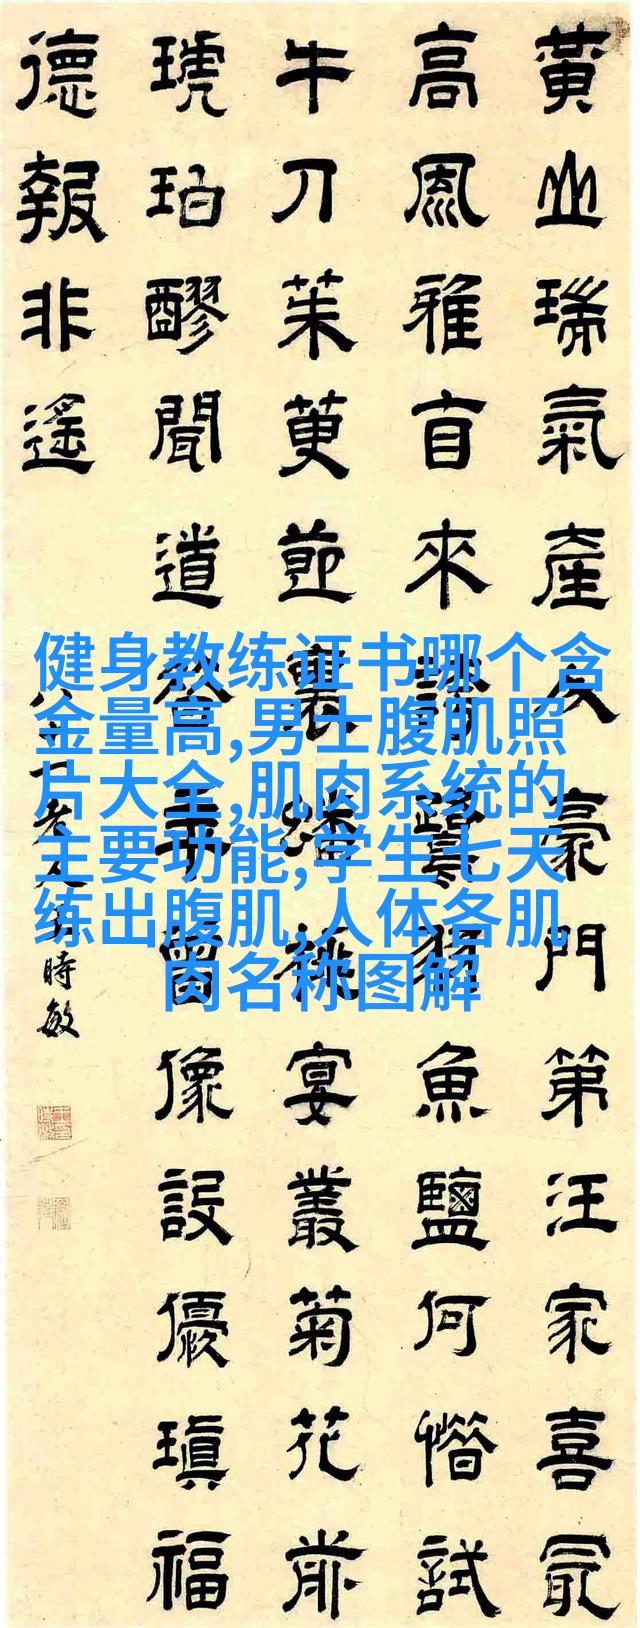 黃山瑞氣產人豪門第汪家喜㝡
高風雅來魚鹽何惜試
牛刀茱萸節裏蟠桃宴叢菊花前
琥珀醪聞道曾像設優瑱福
德報非遙
八十老人時敏
健身教练证书哪个含
金量高,男士腹肌照
片大全,肌肉系统的
主要功能,学生七天
练出腹肌,人体各肌
肉名称图解